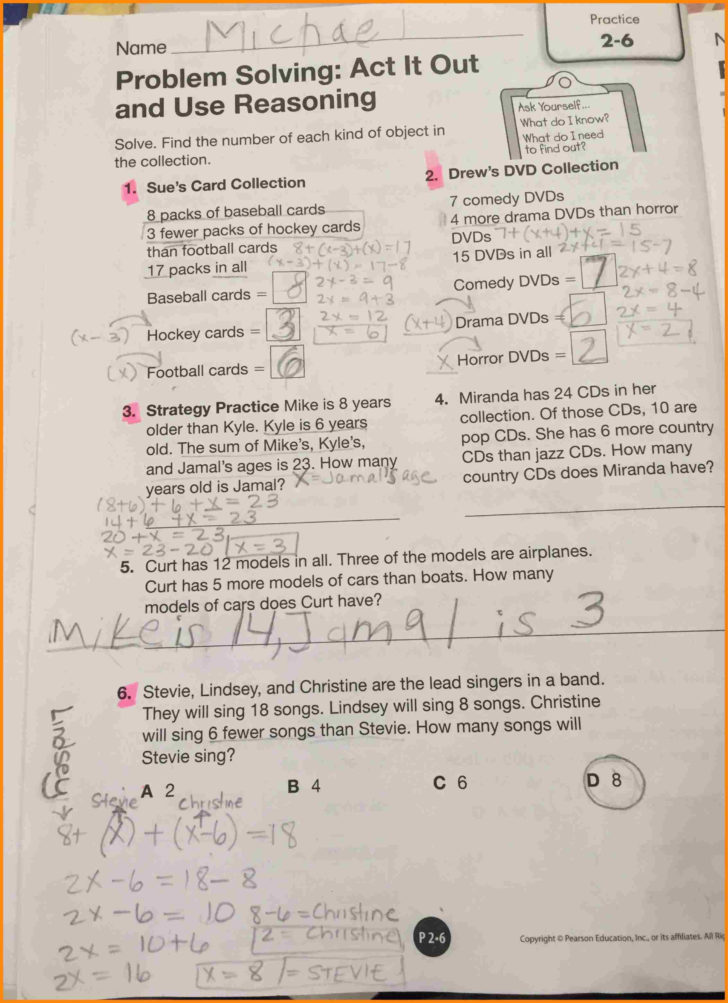 Name Michael
Practice
2-6
Problem Solving: Act It Out
and Use Reasoning
Ask Yourself...
What do I know?
What do I need
to find out?
Solve. Find the number of each kind of object in
the collection.
1. Sue's Card Collection
8 packs of baseball cards
3 fewer packs of hockey cards
than football cards 8+(x-3)+(x)=17
17 packs in all (x-3)+(x)=17-8
2x-3=9
Baseball cards = 8 2x=9+3
2x=12
(x-3) Hockey cards = 3 x=6
(x) Football cards = 6
2. Drew's DVD Collection
7 comedy DVDs
4 more drama DVDs than horror
DVDs 7+(x+4)+x=15
15 DVDs in all 2x+4=15-7
Comedy DVDs = 7 2x+4=8
2x=8-4
(x+4) Drama DVDs = 6 2x=4
x=2
X Horror DVDs = 2
3. Strategy Practice Mike is 8 years
older than Kyle. Kyle is 6 years
old. The sum of Mike's, Kyle's,
and Jamal's ages is 23. How many
years old is Jamal? X=Jamal's age
(8+6)+6+x=23
14+6+x=23
20+x=23
x=23-20 x=3
4. Miranda has 24 CDs in her
collection. Of those CDs, 10 are
pop CDs. She has 6 more country
CDs than jazz CDs. How many
country CDs does Miranda have?
5. Curt has 12 models in all. Three of the models are airplanes.
Curt has 5 more models of cars than boats. How many
models of cars does Curt have?
Mike is 14, Jamal is 3
6. Stevie, Lindsey, and Christine are the lead singers in a band.
They will sing 18 songs. Lindsey will sing 8 songs. Christine
will sing 6 fewer songs than Stevie. How many songs will
Stevie sing?
A 2 B 4 C 6 D 8
Lindsey Stevie Christine
8+(x)+(x-6)=18
2x-6=18-8
2x-6=10 8-6=Christine
2x=10+6 2=Christine
2x=16 x=8=STEVIE
P 2•6
Copyright © Pearson Education, Inc., or its affiliates. All